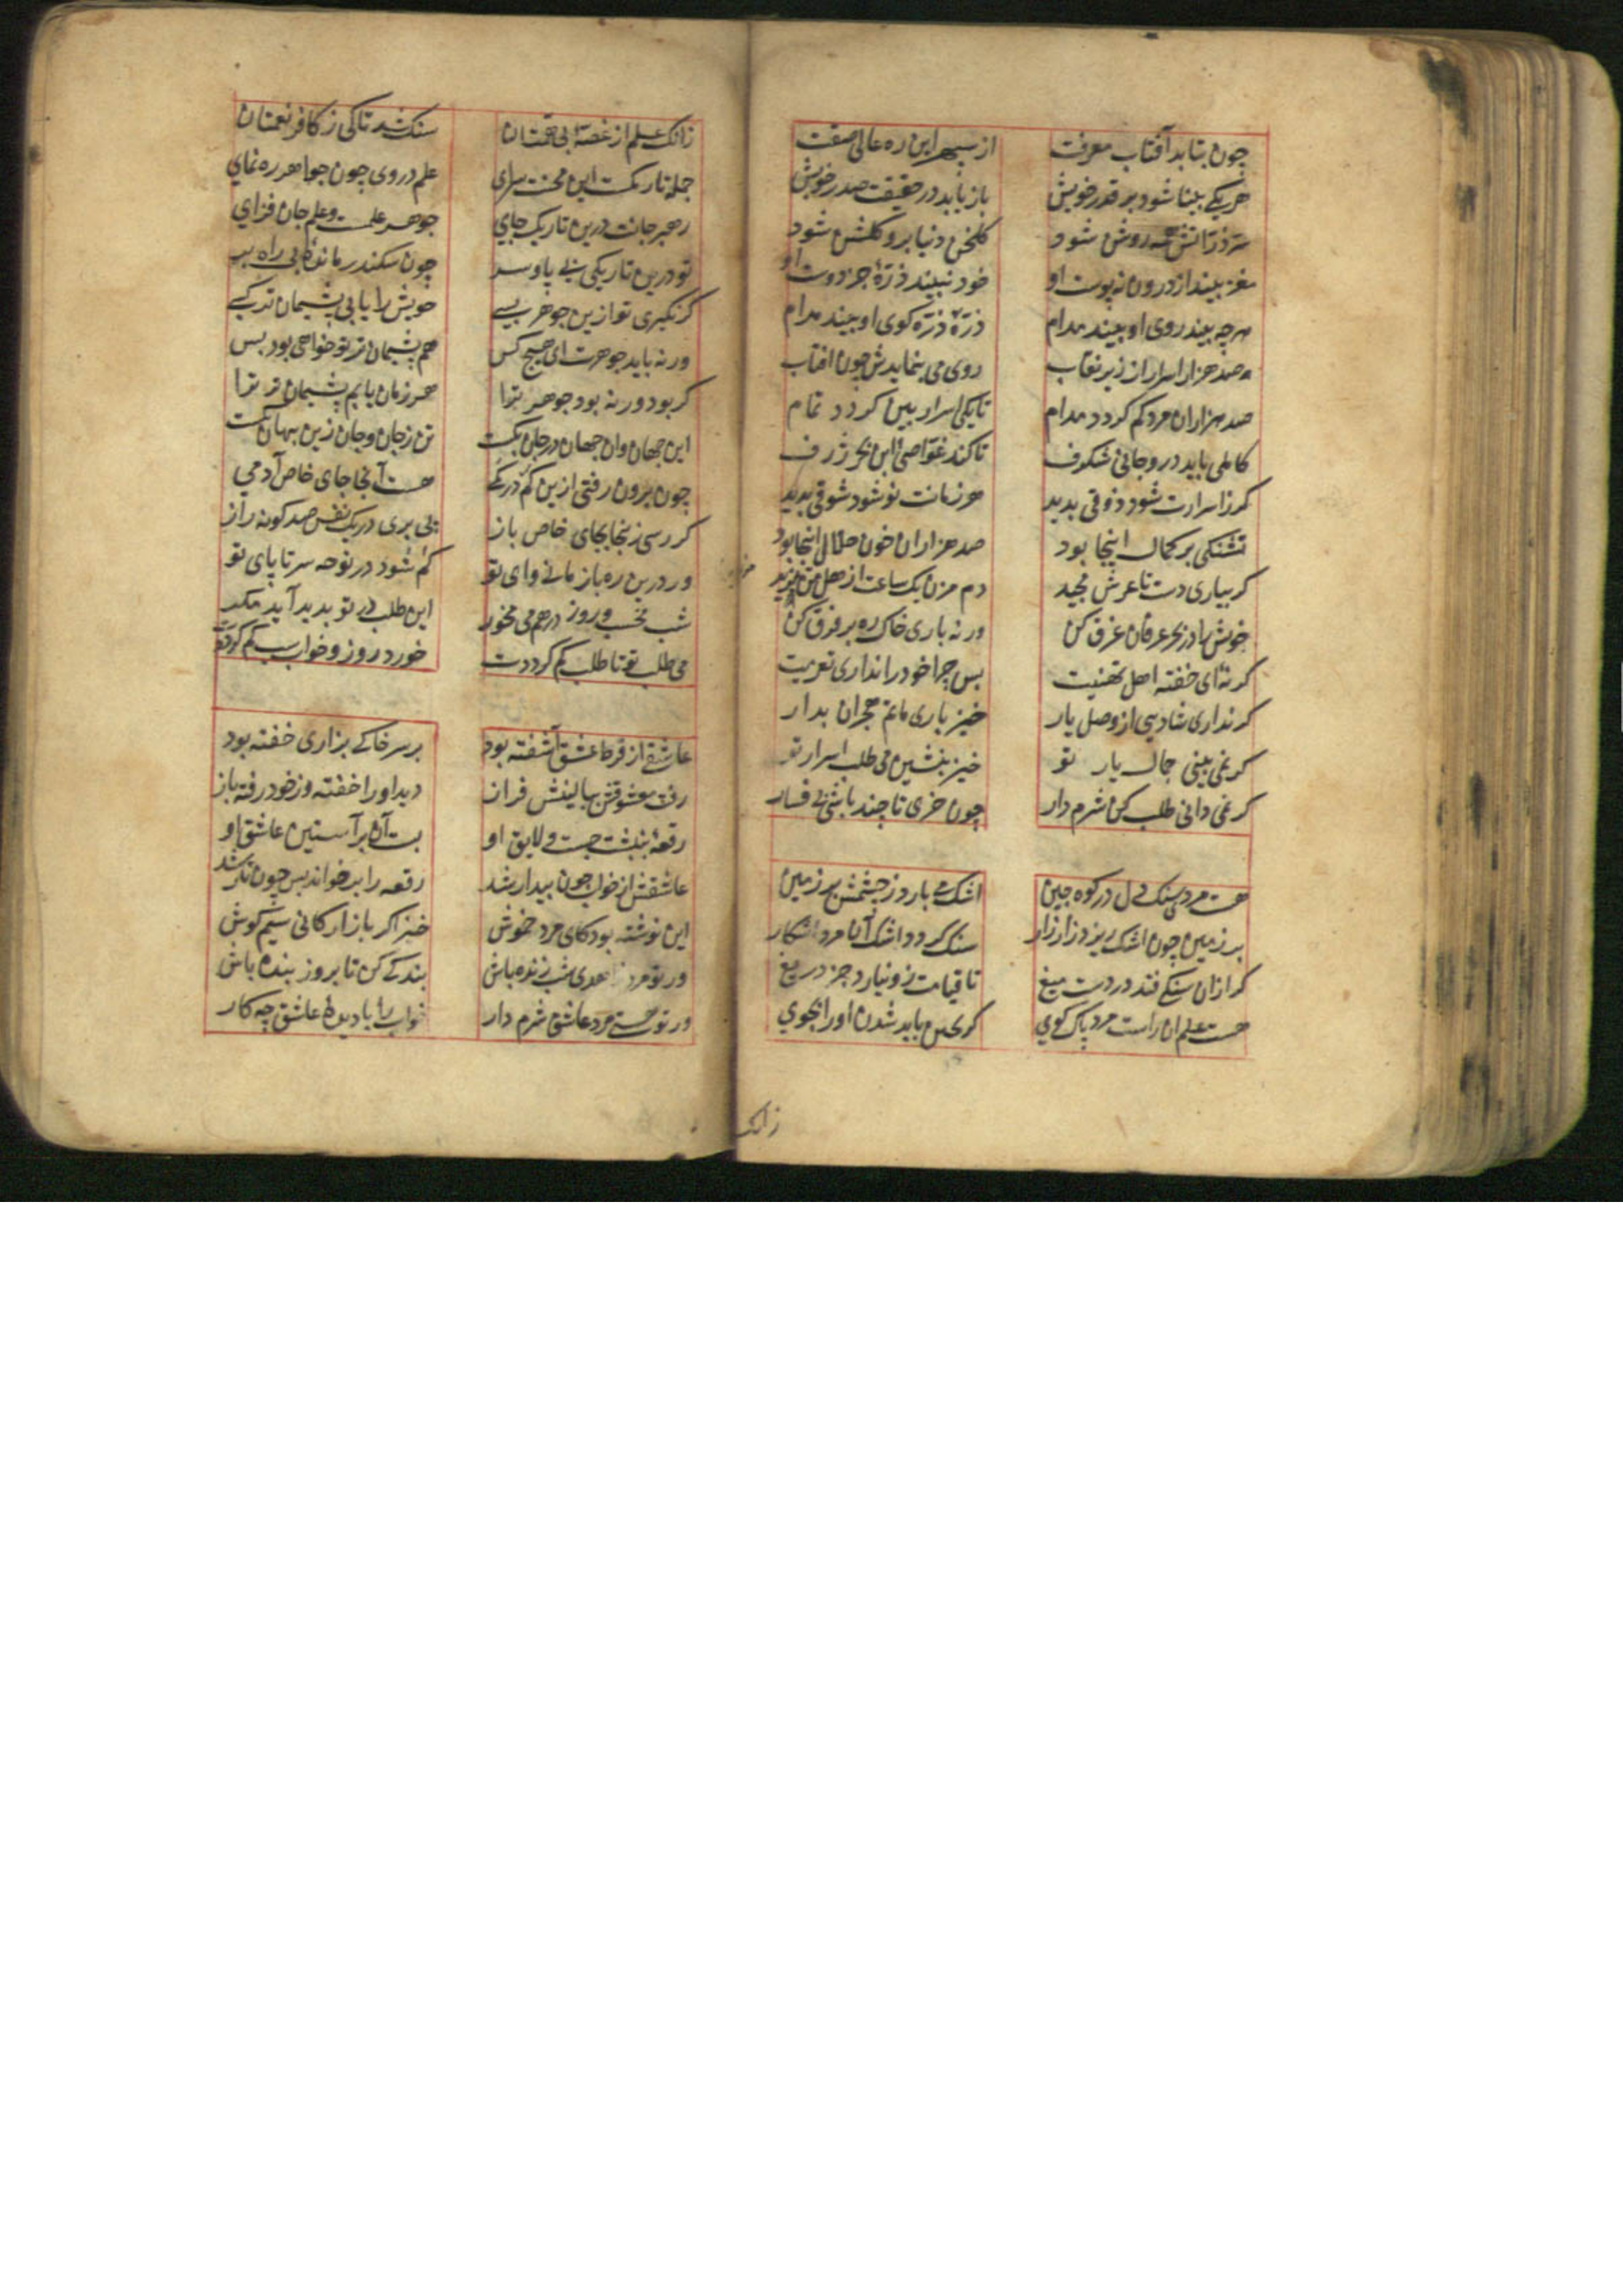 چون بتابد آفتاب معرفت از سپهر این ره عالی صفت
هریکی بینا شود بر قدر خویش باز یابد در حقیقت صدر خویش
سر ذراتش همه روشن شود کلخن دنیا برو کلشن شود
مغز بیند از درون نه پوست او خود نبیند ذرّهٔ جز دوست او
هرچه بیند روی او بیند مدام ذرّهٔ ذرّه کوی او بیند مدام
صد هزار اسرار از زیر نقاب روی می بنمایدش چون افتاب
صد هزاران مرد کم کردد مدام تا یکی اسرار بین کردد تمام
کاملی باید درو جانی شکرف تا کند غواصی این بحر ژرف
کر ز اسرارت شود ذوقی بدید هر زمانت نو شود شوقی بدید
تشنکی بر کمال اینجا بود صد هزاران خون حلال اینجا بود
کر بیاری دست تا عرش مجید دم مزن یک ساعت از هل من مزید
خویش را در بحر عرفان غرق کن ورنه باری خاک ره بر فرق کن
کر نهٔ ای خفته اهل تهنیت بس چرا خود را نداری تعزیت
کر نداری شادیی از وصل یار خیز باری ماتم هجران بدار
کر نمی بینی جمال یار تو خیز بنشین می طلب اسرار تو
کر نمی دانی طلب کن شرم دار چون خری تا چند باشی بی فسار
هست مردی سنک دل در کوه چین اشک می بارد ز چشمش بر زمین
بر زمین چون اشک ریزد زار زار سنک کردد اشک آن مرد اشکار
کر ازان سنکی فتد در دست میغ تا قیامت زو نبارد جز دریغ
هست علم ان راست مرد پاک کوی کر بچین باید شدن او را بجوی
زانک
زانک علم از غصهٔ بی همتان سنک شد تا کی ز کافر نعمتان
جمله تاریکست این محنت سرای علم در وی چون جواهر ره نمای
رهبر جانت درین تاریک جای جوهر علمست و علم جان فزای
تو درین تاریکی بی پا و سر چون سکندر ماندهٔ بی راه بر
کر نکیری تو ازین جوهر بسی خویش را یابی پشیمان تر کسی
ور نه باید جوهرت ای هیچ کس هم پشیمان تر تو خواهی بود بس
کر بود ور نه بود جوهر ترا هر زمان یابم پشیمان تر ترا
این جهان وان جهان در جان کمست تن ز جان و جان ز تن پنهان کمست
چون برون رفتی ازین کم در کمی هست آنجا جای خاص آدمی
کر رسی زینجا بجای خاص باز پی بری در یک نفس صد کونه راز
ور درین ره باز مانی وای تو کم شود در نوحه سر تا پای تو
شب مخسب و روز در هم می مخور این طلب در تو بدید آید مکر
می طلب تو تا طلب کم کرددت خورد روز و خواب شب کم کرددت
عاشقی از فرط عشق آشفته بود بر سر خاکی بزاری خفته بود
رفت معشوقش ببالینش فراز دید او را خفته وز خود رفته باز
رقعهٔ بنبشت چست و لایق او بست آن بر آستین عاشق او
عاشقش از خواب چون بیدار شد رقعه را برخواند بس چون
این نوشته بود کای مرد خموش خیز اکر بازارکانی سیم کوش
ور تو مرد زاهدی شب زنده باش بندکی کن تا بروز بنده باش
ور تو هستی مرد عاشق شرم دار خواب را با دیدهٔ عاشق چه کار